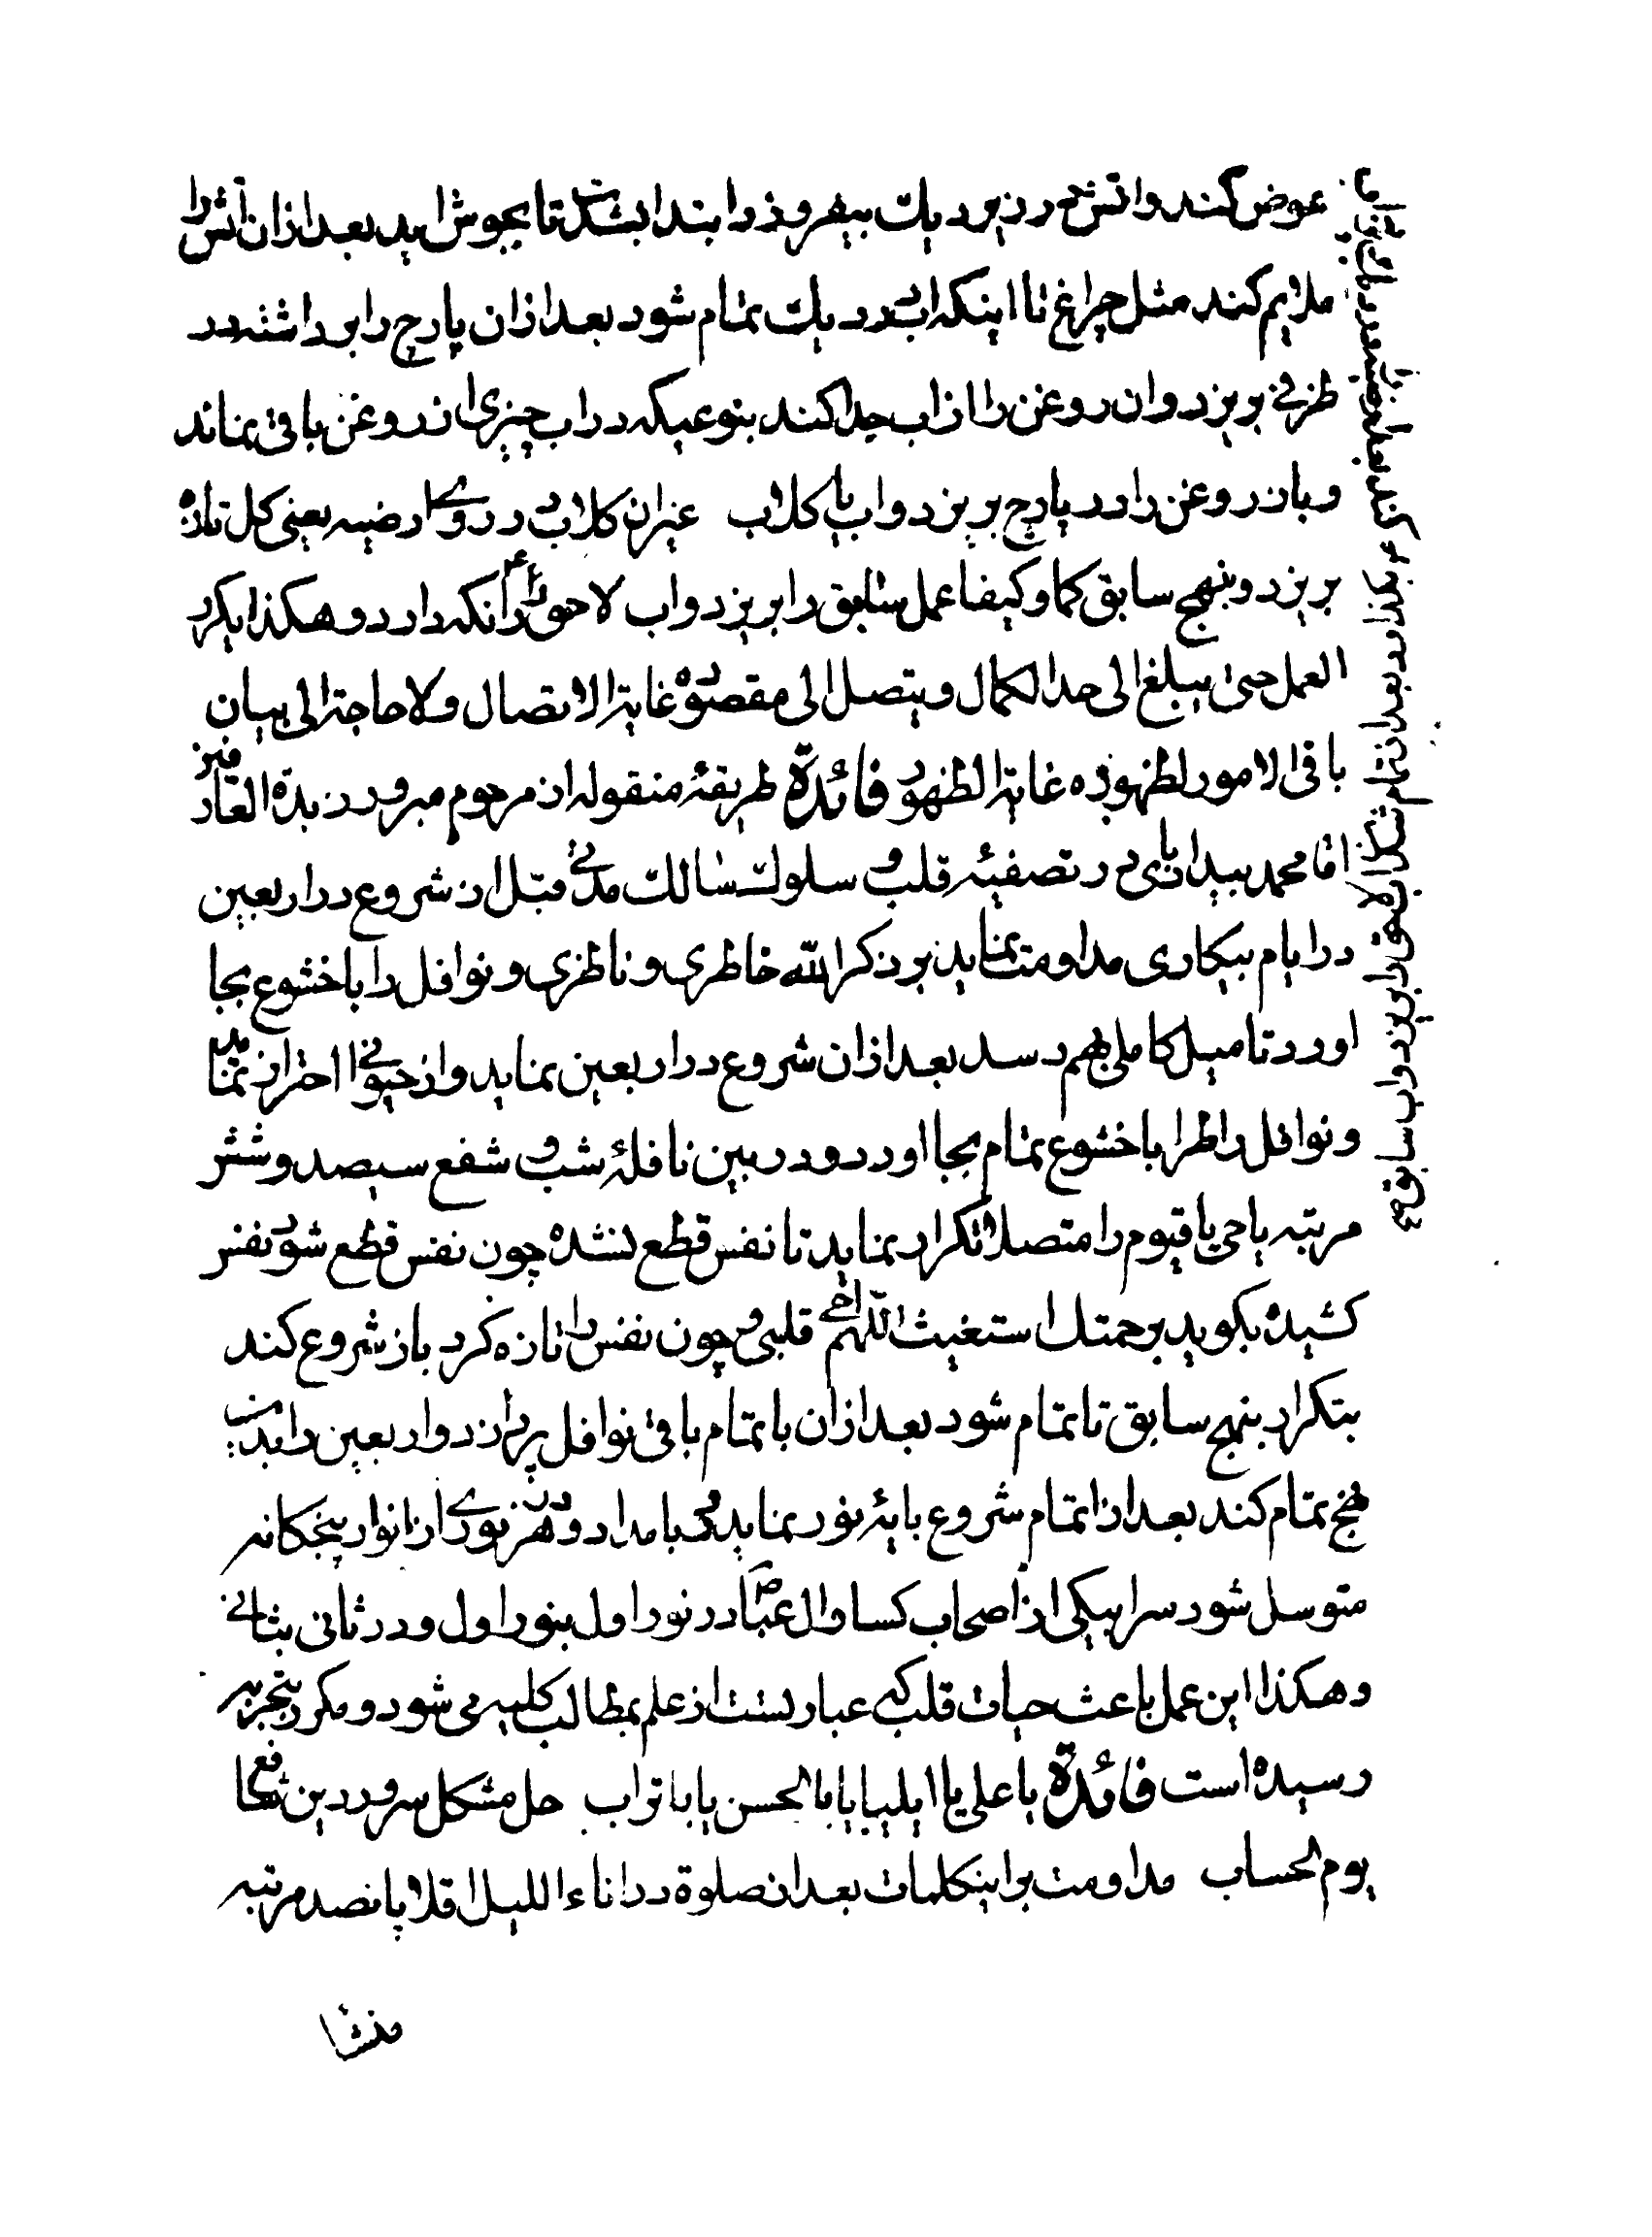 عوض کند و اتش در زیر دیك بیفروزد ابتدا بشدت تا بجوش اید بعد از ان اتش را
ملایم کند مثل چراغ تا اینکه اب در دیك تمام شود بعد از ان پارچ را برداشته در
ظرفی بریزد و ان روغن را از اب جدا کند بنوعیکه در اب چیزی از روغن باقی نماند
و باز روغن را در پارچ بریزد و اب یا کلاب غیر ان کلاب در روی ارضیه یعنی کل تازه
بریزد و بنهج سابق کما و کیفا عمل سابق را بریزد و اب لاحق را نکه دارد و هکذا یکرر
العمل حتی یبلغ الی حد الکمال و یتصل الی مقصوده غایة الاتصال و لا حاجة الی بیان
باقی الامور لظهوره غایة الظهور فائدة طریقهٔ منقوله از مرحوم مبرور زبدة العارفین
اقا محمد بیدابادی در تصفیهٔ قلب و سلوك سالك مدتی قبل از شروع در اربعین
در ایام بیکاری مداومت نماید بر ذکر الله خاطری و ناظری و نوافل را با خشوع بجا
اورد تا میل کاملی بهم رسد بعد از ان شروع در اربعین نماید و از حیوانی احتراز نماید
و نوافل را طرا با خشوع تمام بجا اورد و در بین نافلهٔ شب و شفع سیصد و شش
مرتبه یا حی یا قیوم را متصلا تکرار نماید تا نفس قطع نشده چون نفس قطع شود نفس
کشیده بکوید برحمتك استغیث اللهم احی قلبی و چون نفس را تازه کرد باز شروع کند
بتکرار بنهج سابق تا تمام شود بعد از ان باتمام باقی نوافل پردازد و اربعین را بدین
نهج تمام کند بعد از اتمام شروع بایهٔ نور نماید هر بامداد و در هر نوری از انوار پنجکانه
متوسل شود سرا بیکی از اصحاب کسا و ال عبا در نور اول بنور اول و در ثانی بثانی
و هکذا این عمل باعث حیات قلب که عبارتست از علم بمطالب کلیه می شود و مکرر بتجربه
رسیده است فائدة یا علی یا ایلیا یا با الحسن یا با تراب حل مشکل سرور دین شافع
یوم الحساب مداومت بر اینکلمات بعد از صلوة در اناء اللیل اقلا پانصد مرتبه
کند بعد
بگذارد بعد از تمام شدن اب لاحق را بریزد و اب سابق